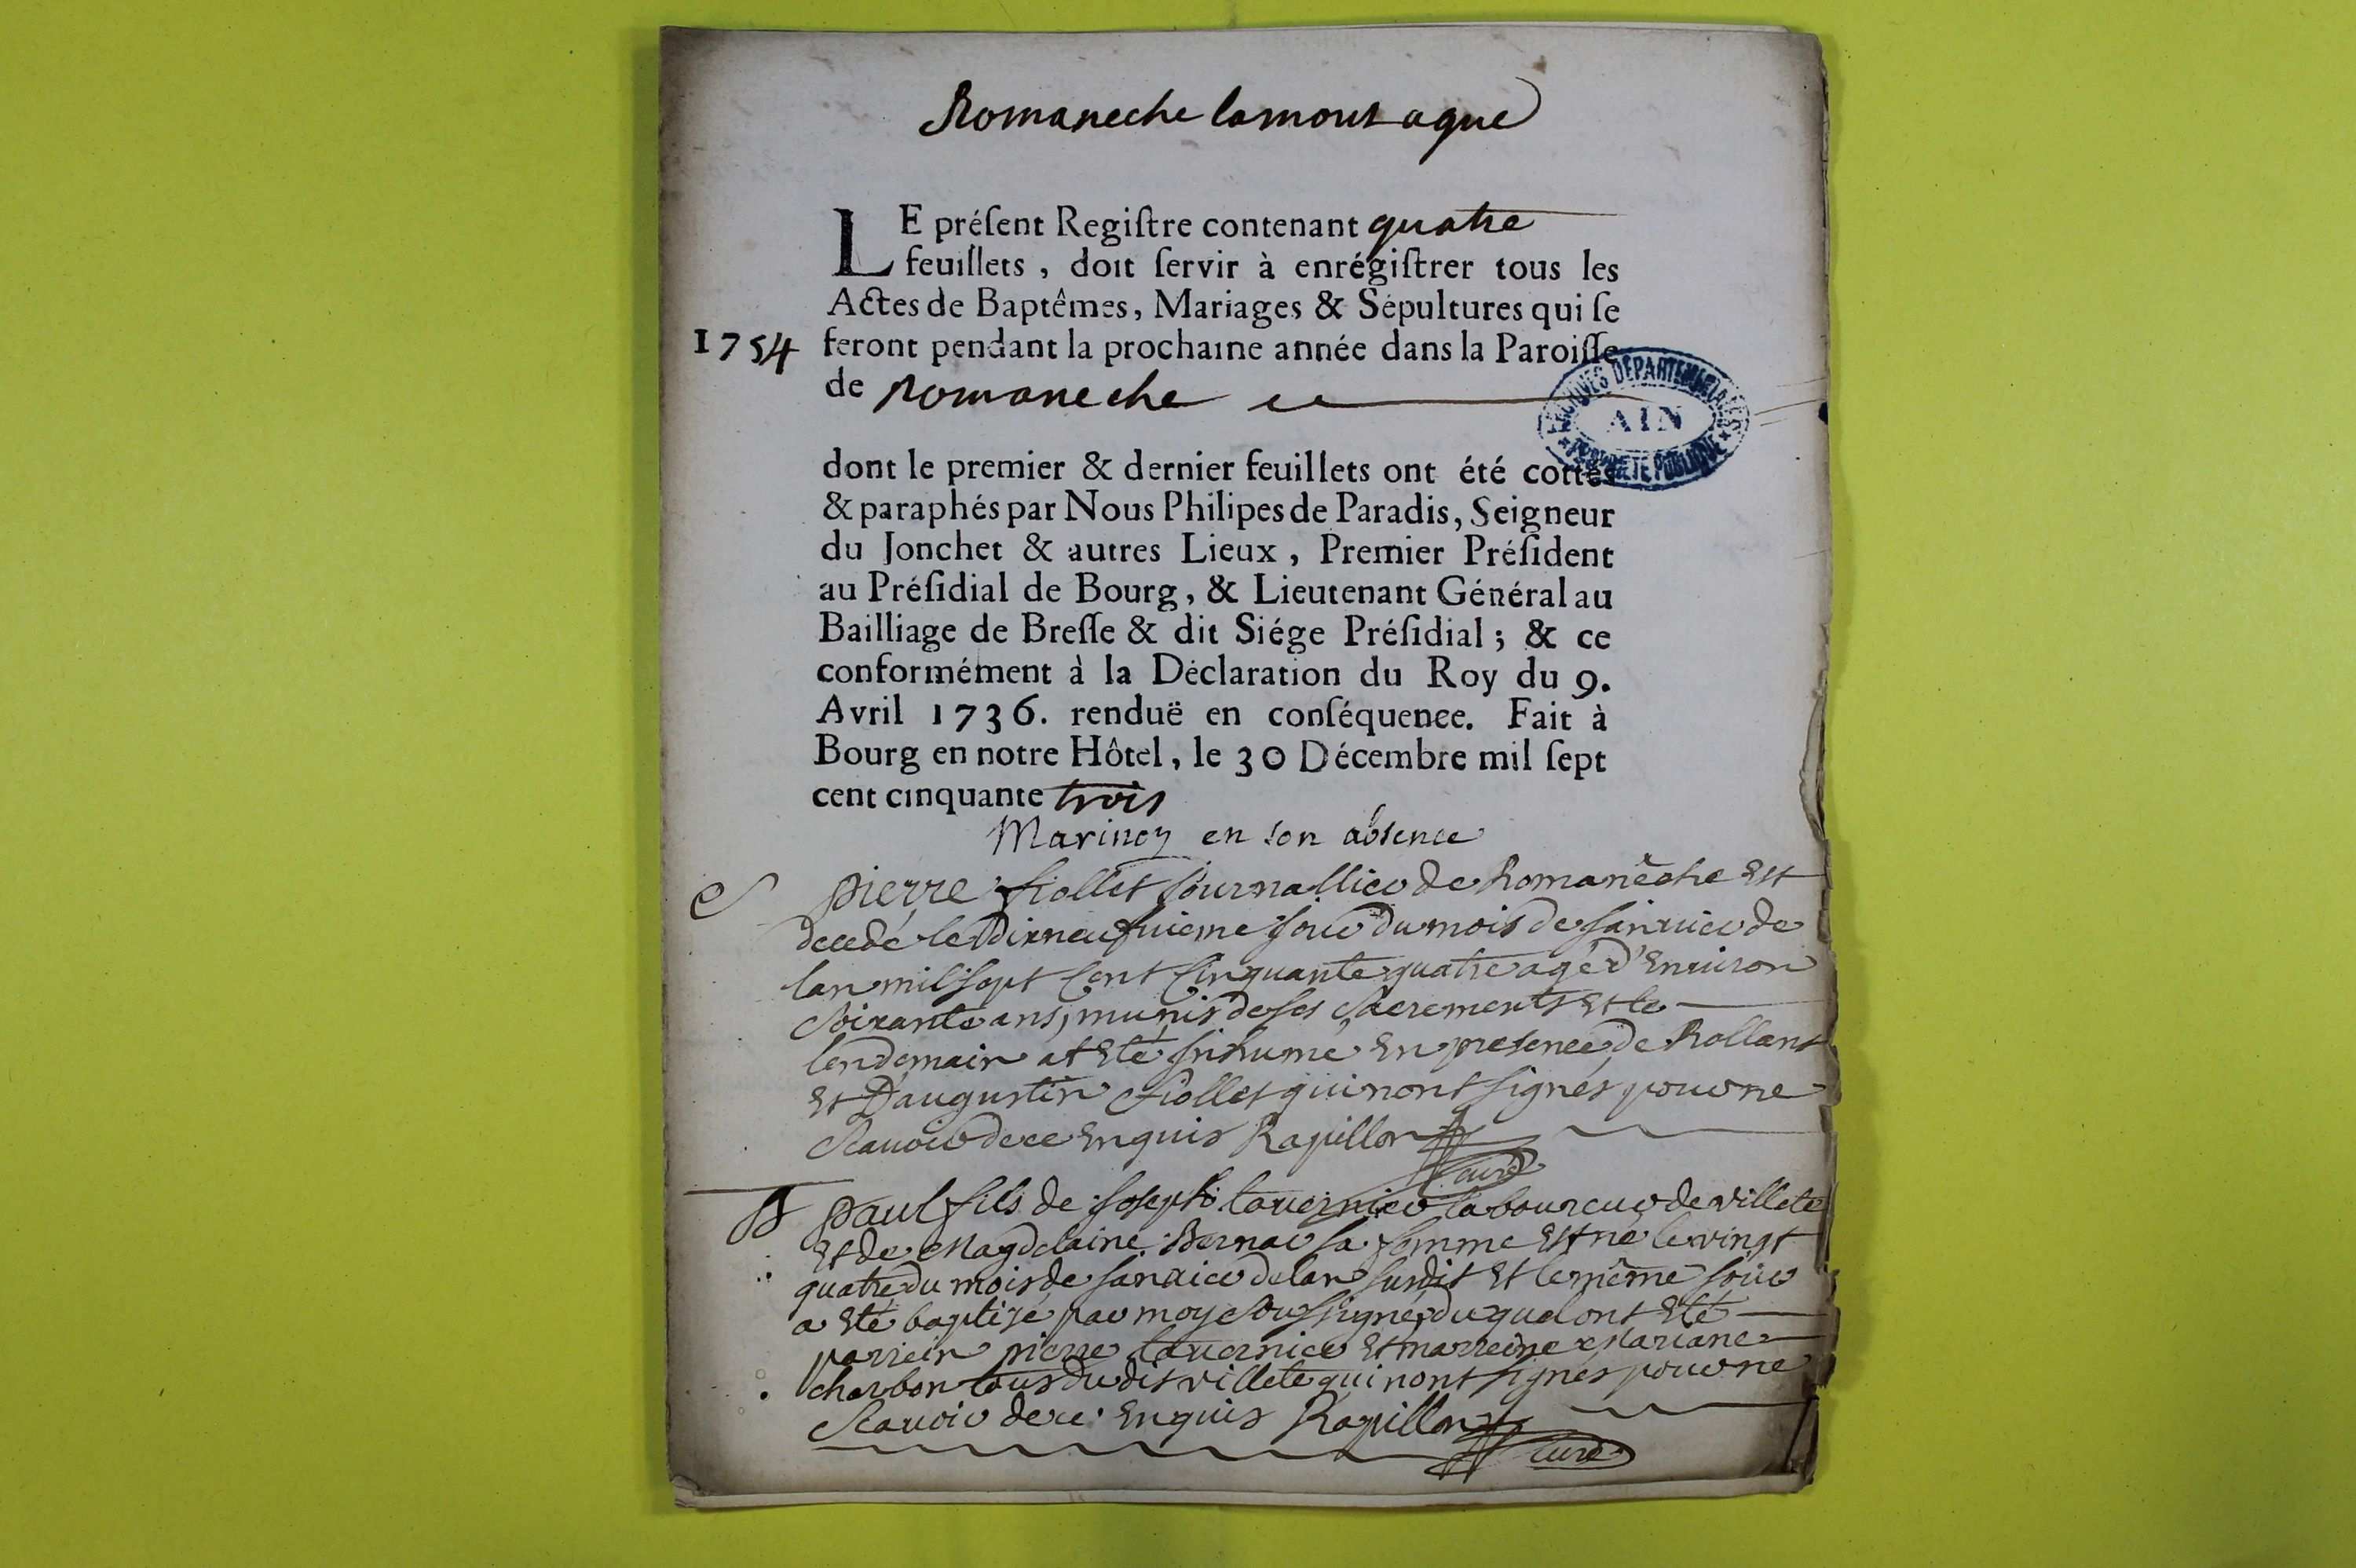 Romaneche lamontagne
LE préſent Regiſtre contenant quatre
feuillets, doit ſervir à enrégiſtrer tous les
Actes de Baptêmes, Mariages & Sépultures qui ſe
1754 feront pendant la prochaine année dans la Paroiſſe
de Romaneche
ARCHIVES DEPARTEMENTALES
AIN
PROPRIETE PUBLIQUE
dont le premier & dernier feuillets ont été cottés
& paraphés par Nous Philipes de Paradis, Seigneur
du Jonchet & autres Lieux, Premier Préſident
au Préſidial de Bourg, & Lieutenant Général au
Bailliage de Breſſe & dit Siége Préſidial; & ce
conformément à la Déclaration du Roy du 9.
Avril 1736. renduë en conſéquence. Fait à
Bourg en notre Hôtel, le 30 Décembre mil ſept
cent cinquante trois
en son absence
pierre fiollet Journallier de Romanêche Est
decedé le dixneufuieme Jour du mois de Januier de
lan mil sept Cent Cinquante quatre agé d'Enuiron
Soixante ans, munis de ses Sacrements Et le
lendemain at Eté Inhumé En presence de Rollant
Et D'augustin fiollet qui nont signés pour ne
Scauoir de ce Enquis Rapillon
curé
B paul fils de Joseph tauernier laboureur de villete
Et de Magdelaine Bernar sa femme Est né le vingt
quatre du mois de Januier de lan susdit Et le même Jour
a Eté baptisé par moy Soussigné, duquel ont Eté
parrein pierre tauernier Et marreine Mariane
charbon tous du dit villete qui nont signés pour ne
Scauoir de ce Enquis Rapillon
curé